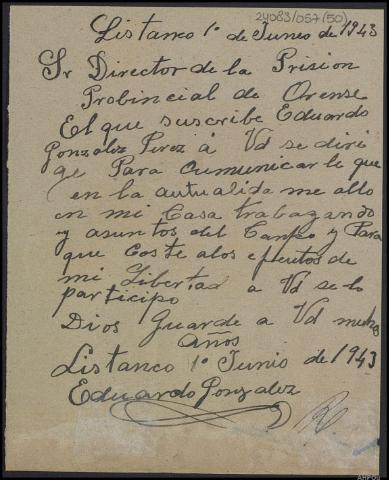 24083/057(50)
Listanco 1º de Juneo de 1943
Sr Director de la Prision
Probincial de Orense
El que suscribe Eduardo
Gonzalez Perez á Vd se diri
ge Para cumunicarle que
en la autualida me allo
en mi Casa trabagando
y asuntos del Canpo y Para
que coste alos efeutos de
mi Libertad a Vd se lo
participo
Dios Guarde a Vd muchos
años
Listanco 1º Junio de 1943
Eduardo Gonzalez